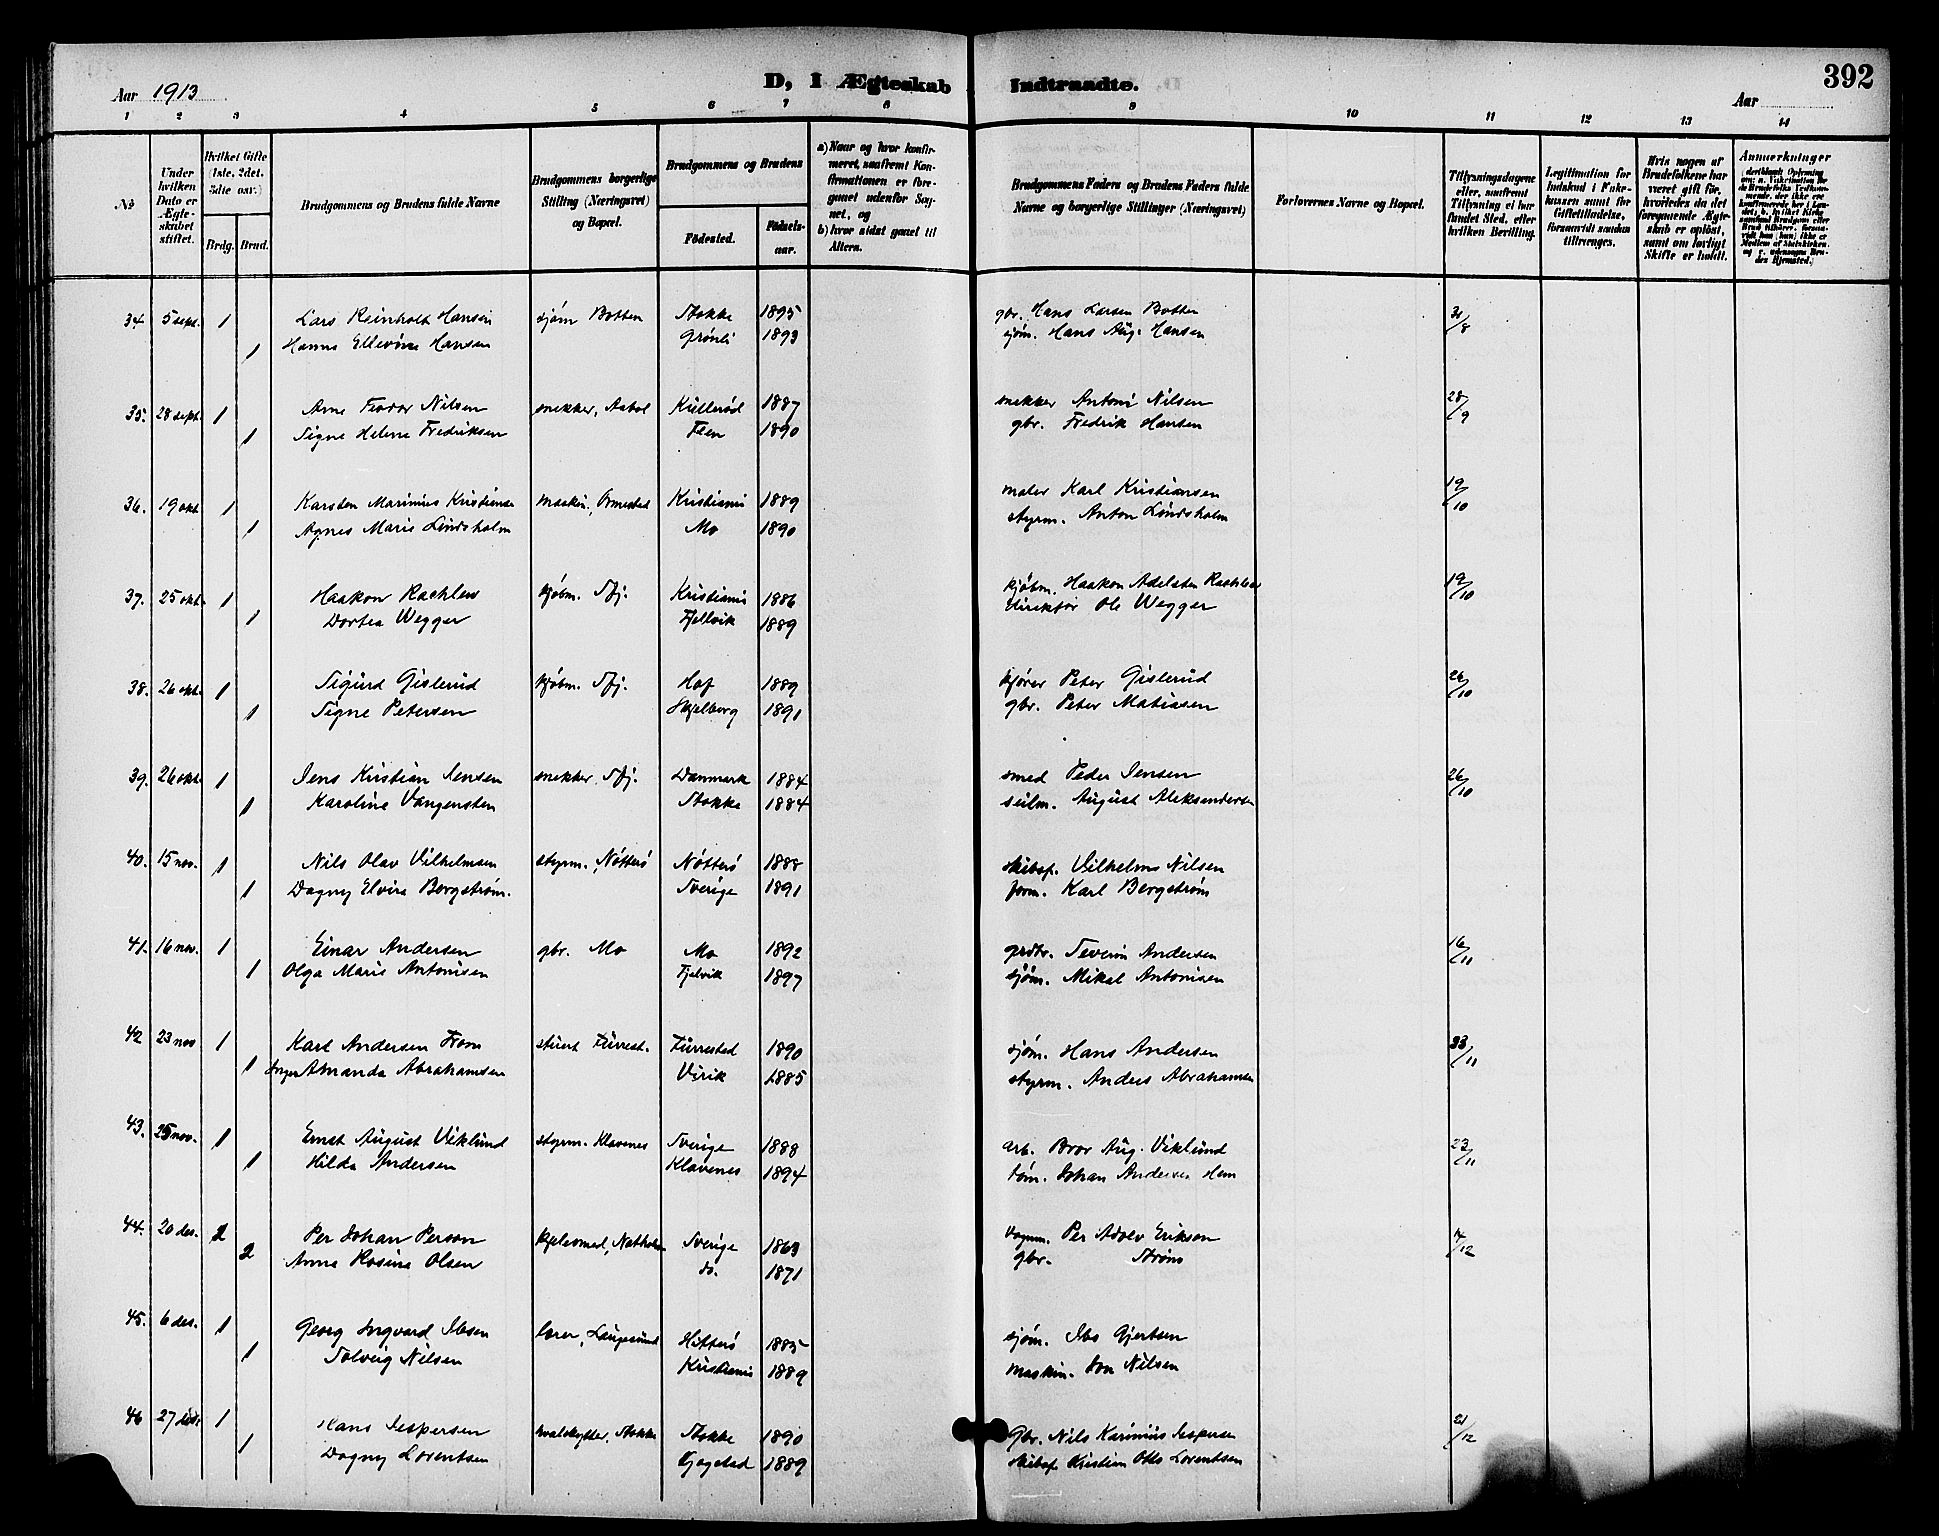 392
D, I Ægteskab Indtraadte.
Aar 1913
Aar
1 2 3 4 5 6 7 8 9 10 11 12 13 14
No
Under hvilken Dato er Ægteskabet stiftet.
Hvilket Gifte (1ste, 2det, 3die osv.)
Brdg. Brud.
Brudgommens og Brudens fulde Navne
Brudgommens borgerlige Stilling (Næringsvei) og Bopæl.
Brudgommens og Brudens
Fødested. Fødselsaar.
a) Naar og hvor konfirmeret, saafremt Konfirmationen er foregaaet udenfor Sognet, og
b) hvor sidst gaaet til Alters.
Brudgommens Faders og Brudens Faders fulde Navne og borgerlige Stillinger (Næringsvei)
Forlovernes Navne og Bopæl.
Tillysningsdagene eller, saafremt Tillysning ei har fundet Sted, efter hvilken Bevilling.
Legitimation for Indskud i Enkekassen samt for Giftetilladelse, forsaavidt saadan tiltrænges.
Hvis nogen af Brudefolkene har været gift før, hvorledes da det foregaaende Ægteskab er opløst, samt om lovligt Skifte er holdt.
Anmærkninger
34. 5 sept. 1 Lars Reinholt Hansen sjøm Botten Stokke 1895 gbr. Hans Larsen Botten 31/8
1 Hanna Ellevine Hansen Grønli 1893 sjøm. Hans Aug. Hansen
35. 28 sept. 1 Arne Fredor Nilsen snekker, Aabol Küllerød 1887 snekker Antoni Nilsen 28/9
1 Signe Helene Fredriksen Feen 1890 gbr. Fredrik Hansen
36. 19 okt 1 Karsten Marinius Kristianse maskin, Ormestad Kristiania 1889 maler Karl Kristiansen 19/10
1 Agnes Marie Lindsholm Mo 1890 styrm. Anton Lindsholm
37. 25 okt. 1 Haakon Rachlew kjøbm. Sfj. Kristiania 1886 kjøbm. Haakon Adelsten Rachlew 19/10
1 Dortea Wegger Fjellvik 1889 direktør Ole Wegger
38. 26 okt. 1 Sigurd Gislerud kjøbm. Sfj. Hof 1889 kjører Peter Gislerud 26/10
1 Signe Petersen Skjelberg 1891 gbr. Peter Matiasen
39. 26 okt 1 Jens Kristian Jensen snekker, Sfj. Danmark 1884 smed Peder Jensen 26/10
1 Karoline Vangensten Stokke 1884 seilm. August Aleksandersen
40. 15 nov. 1 Nils Olav Vilhelmsen styrm., Nøtterø Nøtterø 1888 skibsf. Vilhelms Nilsen
1 Dagny Elvira Bergstrøm. Sverige 1891 form. Karl Bergstrøm
41. 16 nov. 1 Einar Andersen gbr. Mo Mo 1892 grdbr. Severin Andersen 16/11
1 Olga Marie Antonisen Fjelvik 1897 sjøm. Mikal Antonisen
42 23 nov 1 Karl Andersen From stuert Fürrest. Fürrestad 1890 sjøm. Hans Andersen 23/11
1 Inger Amanda Abrahamsen Virik 1885 styrm. Anders Abrahamsen
43. 25 nov. 1 Ernst August Viklund styrm. Klavenes Sverige 1888 arb. Bror Aug. Viklund 23/11
1 Hilda Andersen Klavenes 1894 tøm. Johan Andersen Hem
44. 20 des. 2 Per Johan Person kjelesmed, Natholm Sverige 1863 Per Adolv Erikson 7/12
2 Anna Rosina Olsen do. 1871 gbr. Strøm
45. 6 des. 1 Georg Ingvard Ibsen lærer, Langesund Hitterø 1885 sjøm. Ibs Gjertsen
1 Solveig Nilsen Kristiania 1889 maskin. Jon Nilsen
46 27 des. 1 Hans Jespersen hvalskytter, Stokke Stokke 1890 Gbr. Nils Karinius Jespersen 21/12
1 Dagny Lorentsen Gogstad 1889 skibsf. Kristian Otto Lorentsen